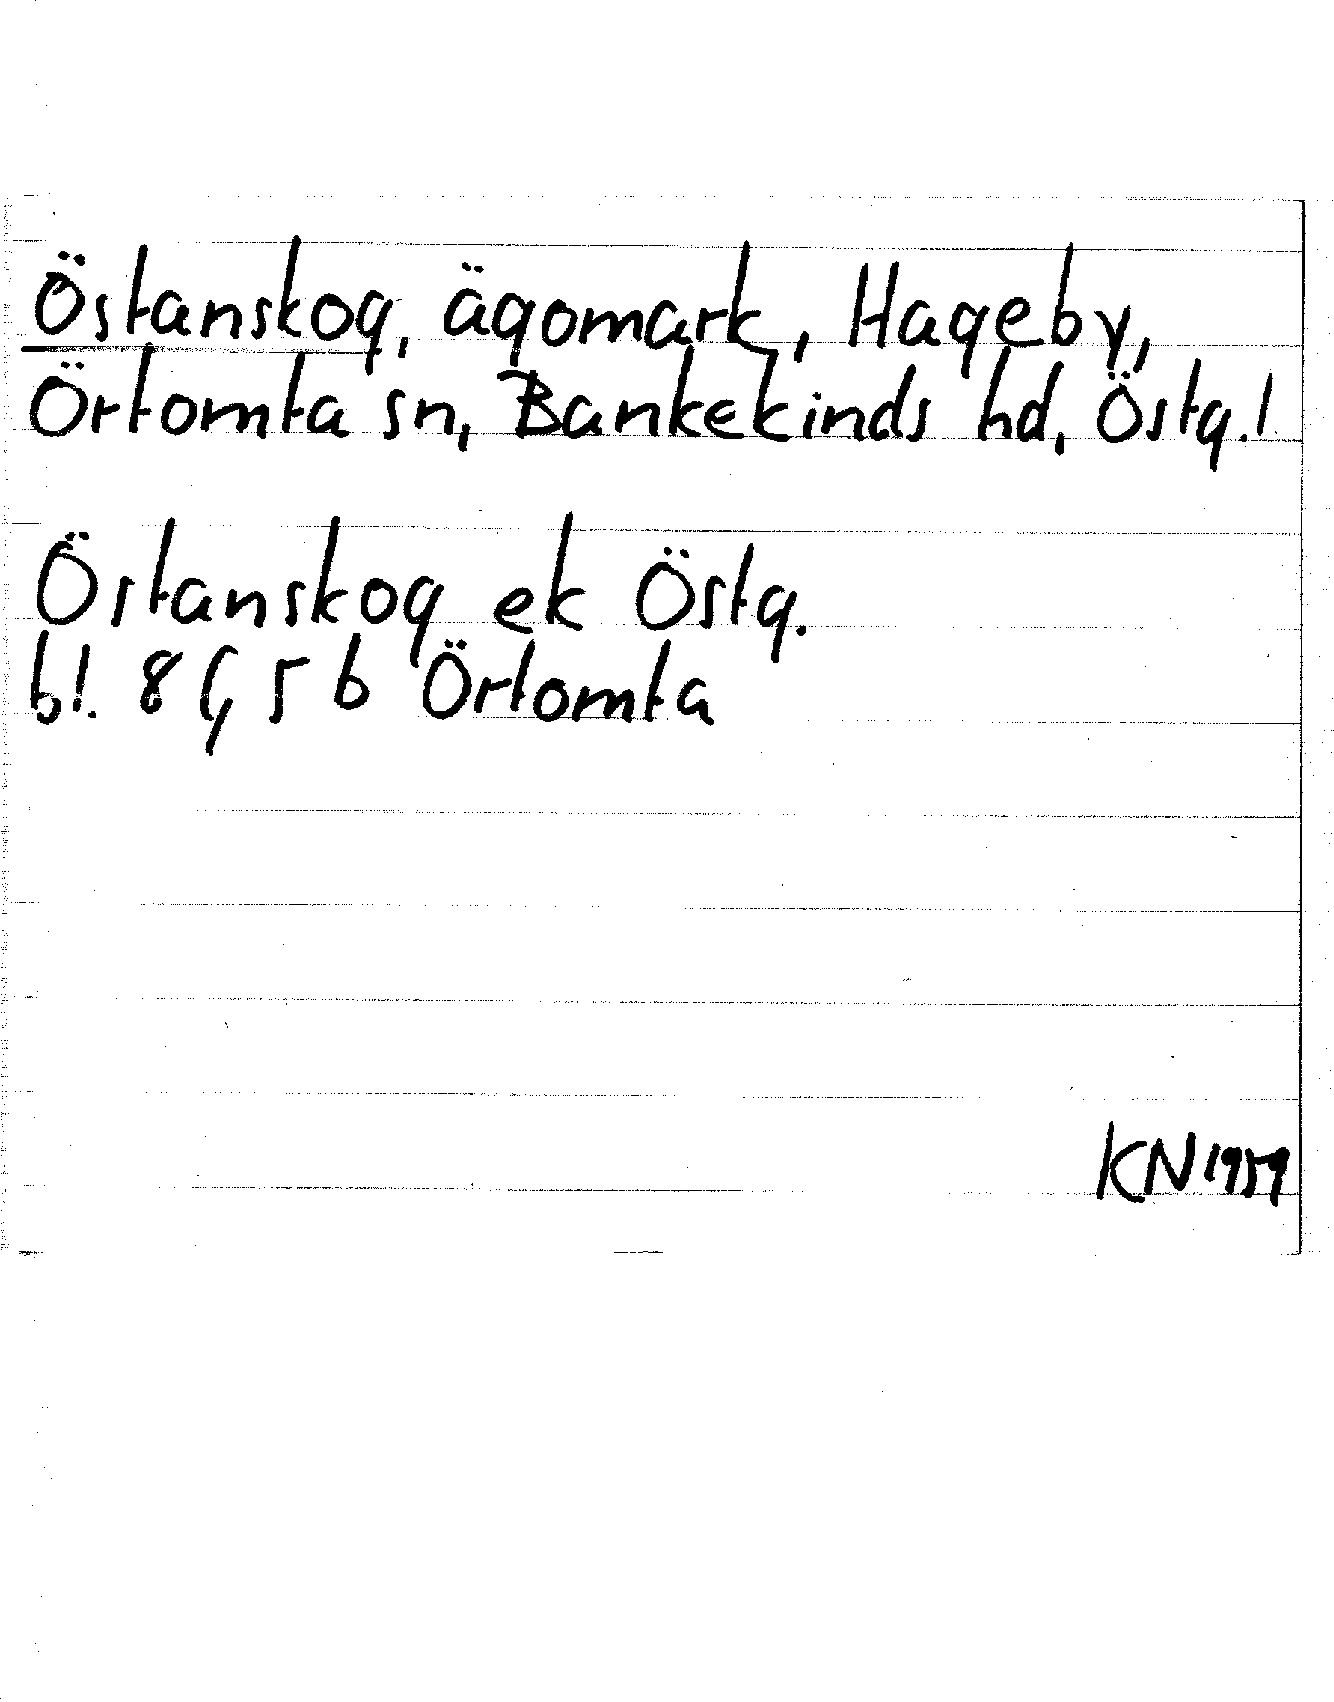 Östanskog, ägomark, Hageby,
Örtomta sn, Bankekinds hd, Östg. l
Östanskog ek Östg.
bl. 8 G 5 b Örtomta
KN 1959